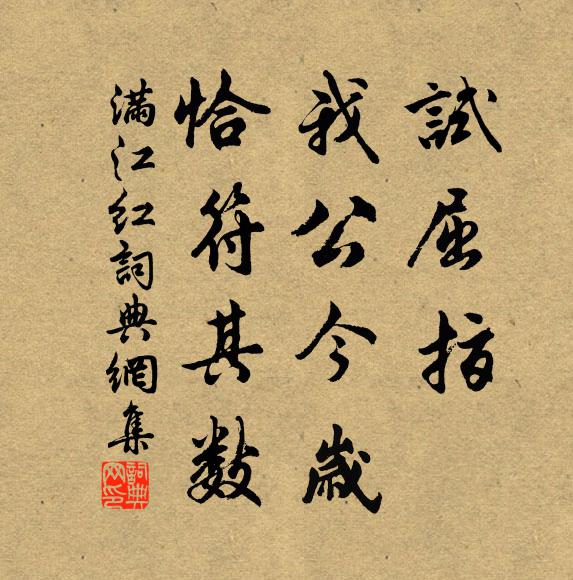 試屈指
我公今歲
恰符其數
滿江紅詞典網集
詞典
网印